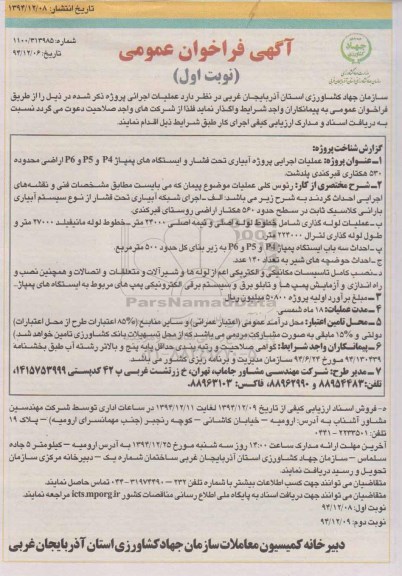 تاریخ انتشار: ۱۳۹۴/۱۲/۰۸
شماره: ۱۱۰۰/۳۱۳۹۸۵
تاریخ: ۹۴/۱۲/۰۶
آگهی فراخوان عمومی
(نوبت اول)
سازمان جهاد کشاورزی استان آذربایجان غربی در نظر دارد عملیات اجرائی پروژه ذکر شده در ذیل را از طریق
فراخوان عمومی به پیمانکاران واجد شرایط واگذار نماید فلذا از شرکت های واجد صلاحیت دعوت می گردد نسبت
به دریافت اسناد و مدارک ارزیابی کیفی اجرای کار طبق شرایط ذیل اقدام نمایند.
گزارش شناخت پروژه:
۱-عنوان پروژه: عملیات اجرایی پروژه آبیاری تحت فشار و ایستگاه های پمپاژ P4 و P5 و P6 اراضی محدوده
۵۳۰ هکتاری قیرکندی پلدشت.
۲-شرح مختصری از کار: رئوس کلی عملیات موضوع پیمان که می بایست مطابق مشخصات فنی و نقشه‌های
اجرایی احداث گردند به شرح زیر می باشد: الف-اجرای شبکه آبیاری تحت فشار از نوع سیستم آبیاری
بارانی کلاسیک ثابت در سطح حدود ۵۶۰ هکتار اراضی روستای قیرکندی.
ب-عملیات لوله گذاری شامل خطوط لوله اصلی و نیمه اصلی ۲۳۰۰۰ متر-خطوط لوله مانیفلد ۲۷۰۰۰ متر و
طول لوله گذاری لترال ۲۲۳۰۰۰ متر.
پ-احداث سه باب ایستگاه پمپاژ P4 و P5 و P6 به زیر بنای کل حدود ۵۰۰ مترمربع.
ج-احداث حوضچه های شیر به تعداد ۱۴۰ عدد.
د-نصب کامل تاسیسات مکانیکی و الکتریکی اعم از لوله ها و شیرآلات و متعلقات و اتصالات و همچنین نصب و
راه اندازی و آزمایش پمپ ها و تابلو برق و سیستم برقی الکترونیکی پمپ های مربوط به ایستگاه های پمپاژ.
۳-مبلغ برآورد اولیه پروژه ۵۰۸۰۰ میلیون ریال
۴-مدت عملیات: ۱۸ ماه شمسی
۵-محل تامین اعتبار: محل درآمد عمومی (اعتبار عمرانی) و سایر منابع (۸۵٪ اعتبارات طرح از محل اعتبارات
دولتی و ۱۵٪ مابقی به صورت مشارکت مردمی می باشد که از محل تسهیلات بانک کشاورزی تامین خواهد شد.)
۶-پیمانکاران واجد شرایط: گواهی صلاحیت و رتبه بندی حداقل پایه پنج و بالاتر رشته آب طبق بخشنامه
سازمان مدیریت و برنامه ریزی کشور می باشد
۷-مدیر طرح: شرکت مهندسی مشاور جاماب، تهران، خ زرتشت غربی پ ۴۲ کدپستی ۱۴۱۵۷۵۳۹۹۹،
تلفن: ۸۸۹۵۴۴۸۳ و ۸۸۹۶۲۹۹۰، فاکس: ۸۸۹۶۳۱۰۳
۵-فروش اسناد ارزیابی کیفی از تاریخ ۱۳۹۴/۱۲/۰۹ لغایت ۱۳۹۴/۱۲/۱۱ در ساعات اداری توسط شرکت مهندسین
مشاور آشناب به آدرس: ارومیه - خیابان کاشانی - کوچه رنجبر (جنب مهمانسرای ارومیه) - پلاک ۱۹
آخرین مهلت ارائه مدارک ساعت ۱۳:۰۰ روز سه شنبه مورخ ۱۳۹۴/۱۲/۲۵ به آدرس ارومیه - کیلومتر ۵ جاده
سلماس - سازمان جهاد کشاورزی استان آذربایجان غربی ساختمان شماره یک - دبیرخانه مرکزی سازمان
تحویل و رسید دریافت نمایند.
متقاضیان می توانند جهت کسب اطلاعات بیشتر با شماره تلفن ۲۳۲ - ۳۱۹۷۴۴۹۰-۰۴۴ تماس حاصل نمایند.
متقاضیان می توانند جهت دریافت اسناد به پایگاه ملی اطلاع رسانی مناقصات کشور icts.mporg.ir مراجعه نمایند.
نوبت اول: ۹۴/۱۲/۰۸
نوبت دوم: ۹۴/۱۲/۰۹
دبیرخانه کمیسیون معاملات سازمان جهاد کشاورزی استان آذربایجان غربی